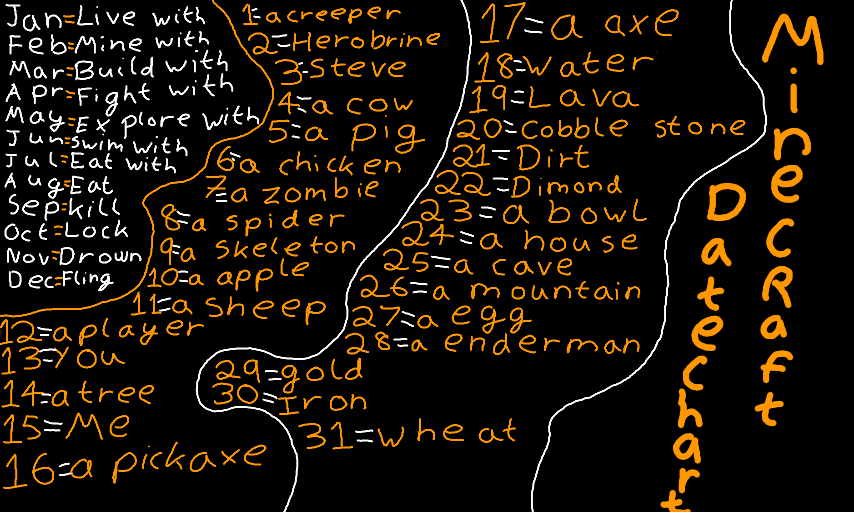 Jan=Live with
Feb=Mine with
Mar=Build with
Apr=Fight with
May=Explore with
Jun=swim with
Jul=Eat with
Aug=Eat
Sep=kill
Oct=Lock
Nov=Drown
Dec=Fling
1=a creeper
2=Herobrine
3=Steve
4=a cow
5=a pig
6=a chicken
7=a zombie
8=a spider
9=a skeleton
10=a apple
11=a sheep
12=a player
13=You
14=a tree
15=Me
16=a pickaxe
17=a axe
18=water
19=Lava
20=Cobble stone
21=Dirt
22=Dimond
23=a bowl
24=a house
25=a cave
26=a mountain
27=a egg
28=a enderman
29=gold
30=Iron
31=wheat
Minecraft
Datechart